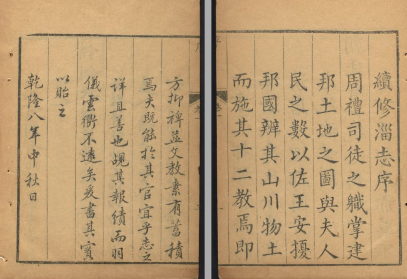 續修淄志序
周禮司徒之職掌建
邦土地之圖與夫人
民之數以佐王安擾
邦國辨其山川物土
而施其十二教焉即
方抑裨益文教素有蓄積
焉夫既能於其官宜乎志之
詳且善也覘其報績而羽
儀雲衢不遠矣爰書其實
以貽之
乾隆八年中秋日